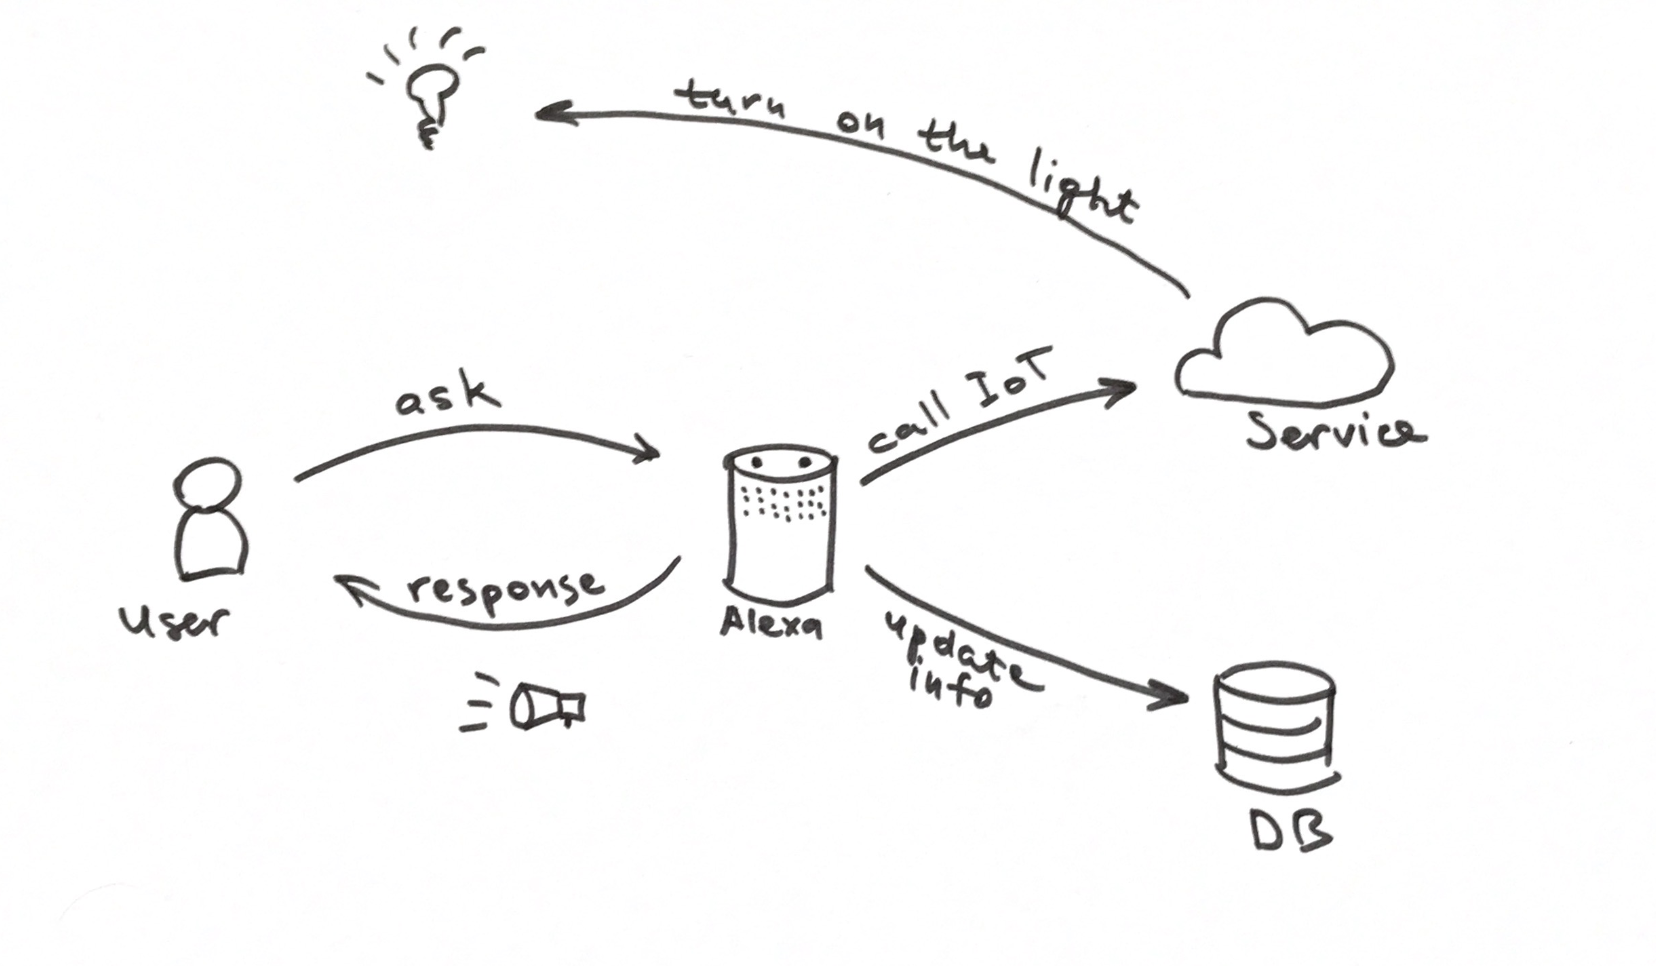 turn on the light
ask
call IoT
Service
response
User
Alexa
update
info
DB